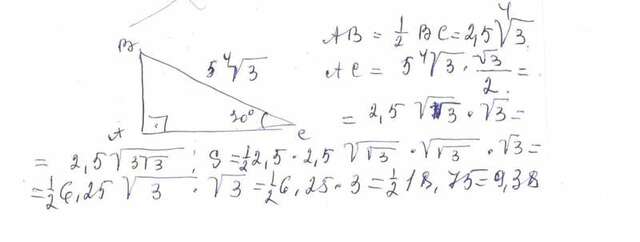 B
5⁴√3
30°
A
C
AB = ½ BC = 2,5 ⁴√3
AC = 5 ⁴√3 · √3/2 =
= 2,5 √√3 · √3 =
= 2,5 √3√3 ; S = ½ 2,5 · 2,5 √√3 · √√3 · √3 =
= ½ 6,25 √3 · √3 = ½ 6,25 · 3 = ½ 18,75 = 9,38